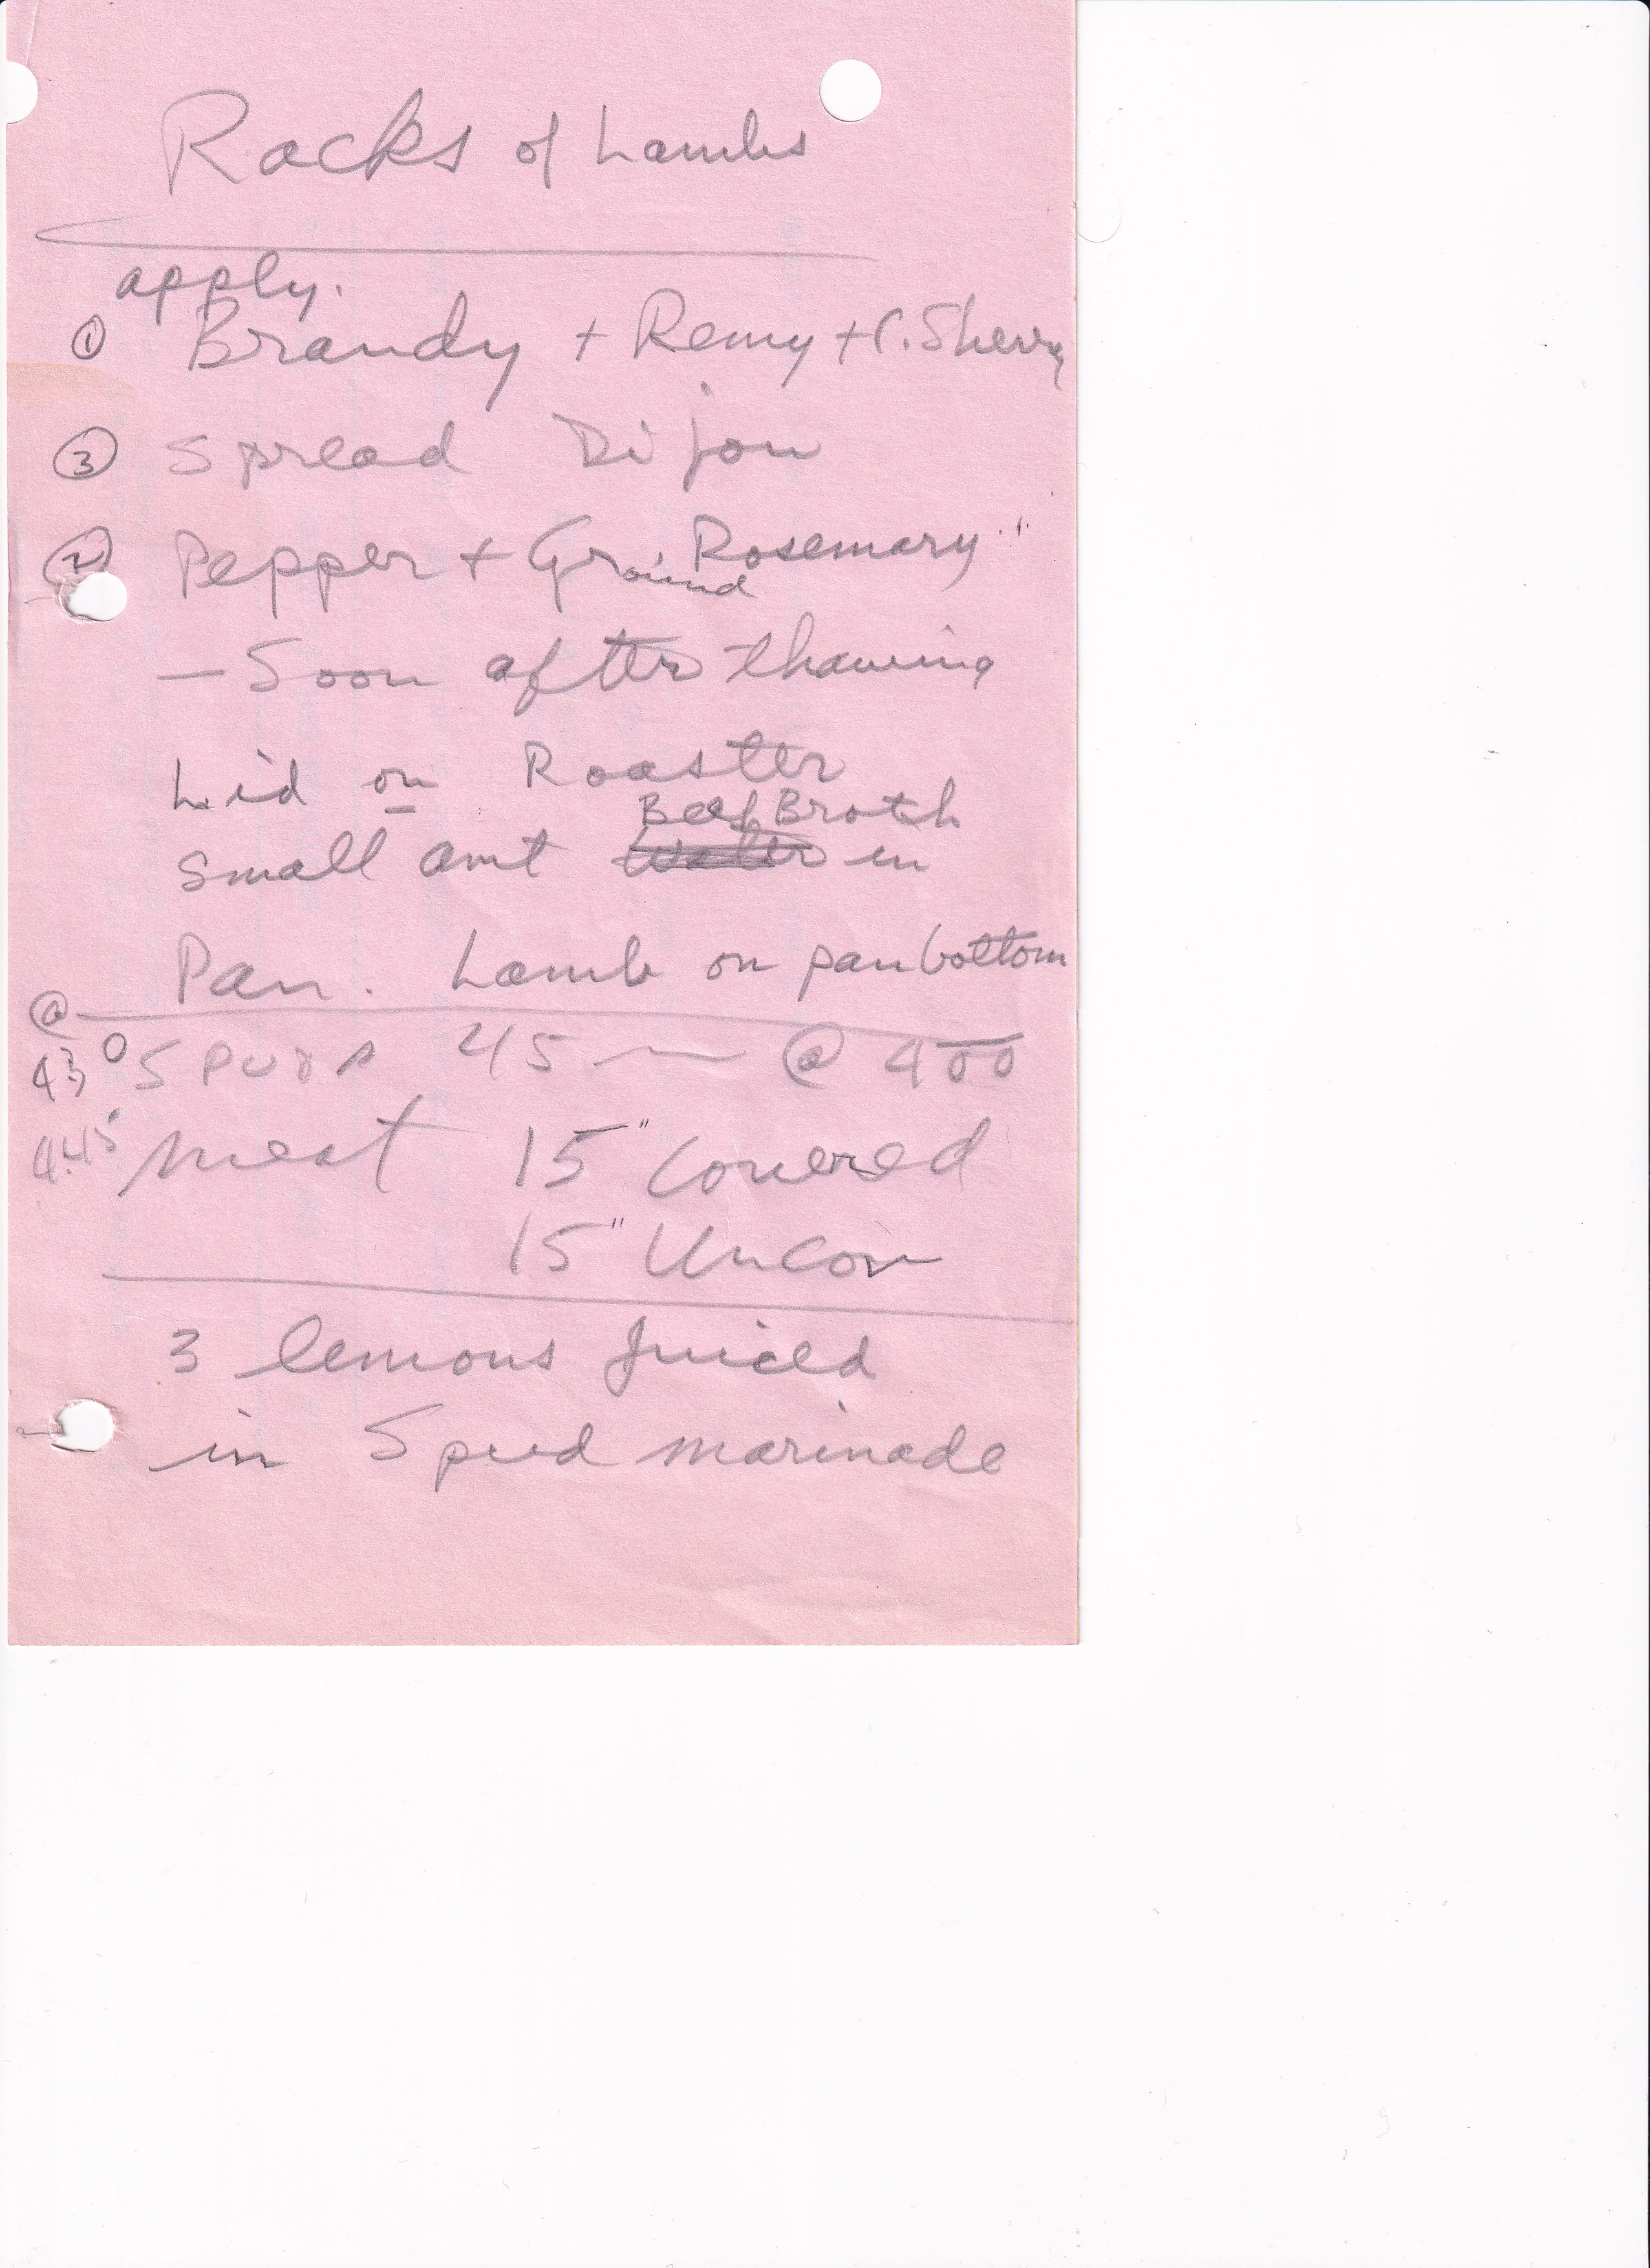 Racks of Lambs
apply.
① Brandy + Remy + C. Sherry
③ Spread Dijon
② Pepper + Ground Rosemary
— Soon after thawing
Lid on Roaster
Beef Broth
small amt Water in
Pan. Lamb on pan bottom
@
430 Spuds 45 @ 400
4:45 Meat 15" Covered
15" Uncov
3 lemons juiced
in Spud marinade